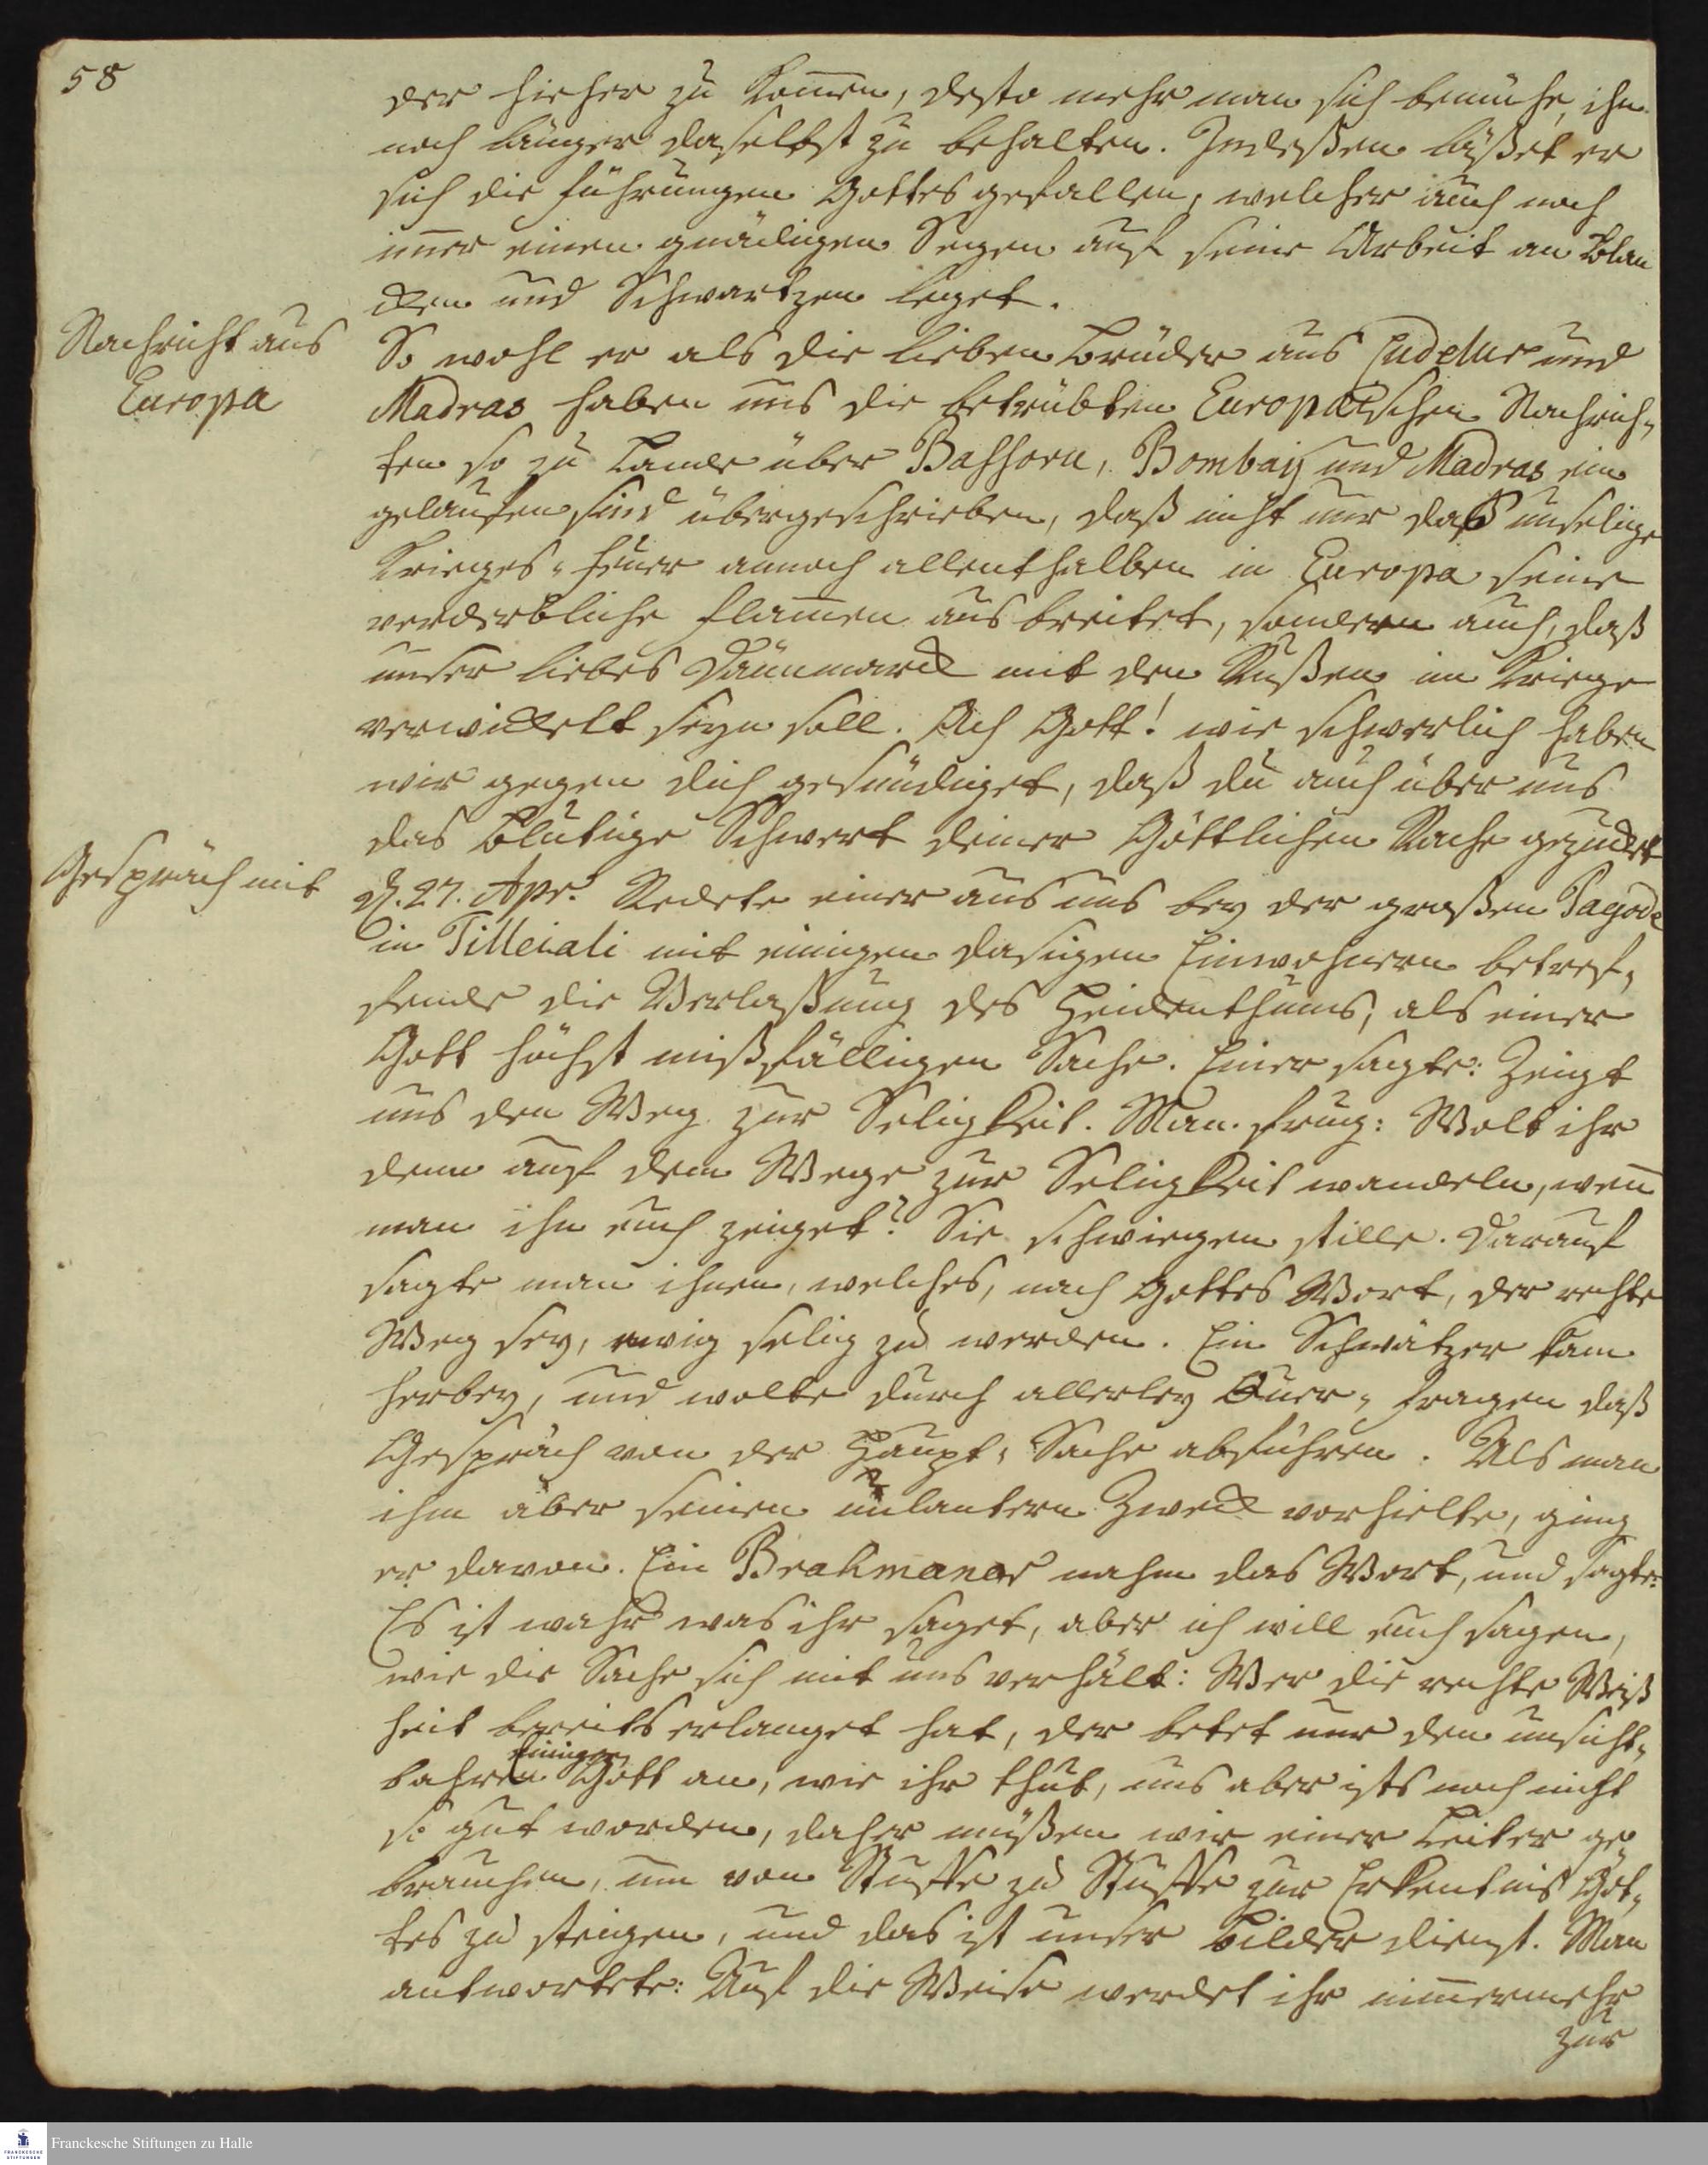 58
der hieher zu kom̄en, desto mehr man sich bemühe, ihn
noch länger daselbst zu behalten. Indeßen läßet er
sich die Führungen Gottes gefallen, welcher auch noch
im̄er einen gnädigen Segen auf seine Arbeit an Blan
cken und Schwartzen leget.
Nachricht aus
Europa
So wohl er als die lieben Brüder aus Cudelur und
Madras haben uns die betrübten Europaeischen Nachrich-
ten so zu Lande über Bassora, Bombay und Madras ein
gelaufen sind übergeschrieben, daß nicht nur daß unselige
Krieges-Feuer annoch allenthalben in Europa seine
verderbliche Flam̄en ausbreitet, sondern auch, daß
unser liebes Dännemarck mit den Rußen im Kriege
verwickelt seyn soll. Ach Gott! wie schwerlich haben
wir gegen dich gesündiget, daß du auch über uns
das blutige Schwert deiner Göttlichen Rache gezücket
Gespräch mit
d. 27. Apr. Redete einer aus uns bey der großen Pagode
in Tilleiali mit einigen dasigen Einwohnern betref-
fende die Verlaßung des Heidenthums, als einer
Gott höchst mißfälligen Sache. Einer sagte: Zeigt
uns den Weg zur Seligkeit. Man frug: Wolt ihr
denn auf dem Wege zur Seligkeit wandeln, wen̄
man ihn euch zeiget? Sie schwiegen stille. Darauf
sagte man ihnen, welches, nach Gottes Wort, der rechte
Weg sey, ewig selig zu werden. Ein Schwätzer kam
herbey, und wolte durch allerley Quer-Fragen daß
Gespräch von der Haupt-Sache abführen. Als man
ihm aber seinen unlautern Zweck vorhielte, ging
er davon. Ein Brahmaner nahm das Wort, und sagte:
Es ist wahr was ihr saget, aber ich will euch sagen,
wie die Sache sich mit uns verhält: Wer die rechte Weiß
heit bereits erlanget hat, der betet nur den unsicht-
bahren einigen Gott an, wie ihr thut, uns aber ists noch nicht
so gut worden, daher müßen wir einer Leiter ge-
brauchen, um von Stuffe zu Stuffe zur Erkentnis Got-
tes zu steigen, und das ist unser Bilderdienst. Man
antwortete: Auf die Weise werdet ihr nim̄ermehr
zur
Franckesche Stiftungen zu Halle
FRANCKESCHE
STIFTUNGEN